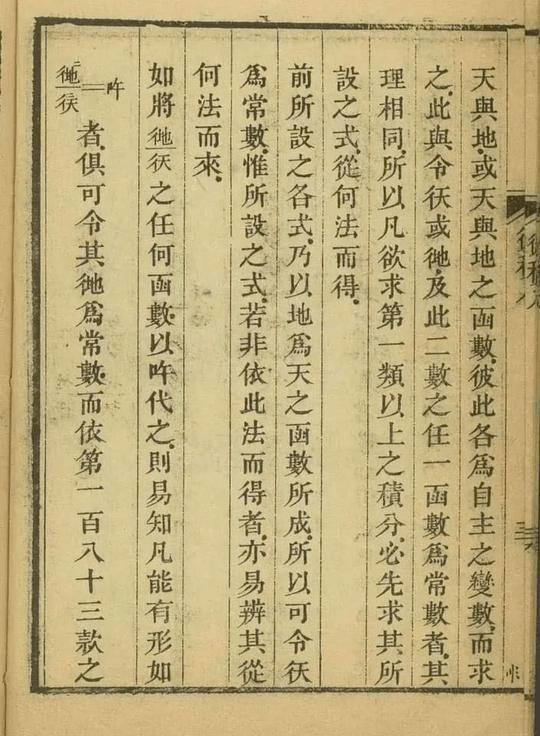 天與地.或天與地之函數.彼此各爲自主之變數.而求
之.此與令彳天或彳地.及此二數之任一函數爲常數者.其
理相同.所以凡欲求第一類以上之積分.必先求其所
設之式.從何法而得.
前所設之各式.乃以地爲天之函數所成.所以可令彳天
爲常數.惟所設之式.若非依此法而得者.亦易辨其從
何法而來.
如將彳地/彳天之任何函數.以吘代之.則易知凡能有形如
彳地/彳天=吘者.俱可令其彳地爲常數.而依第一百八十三款之